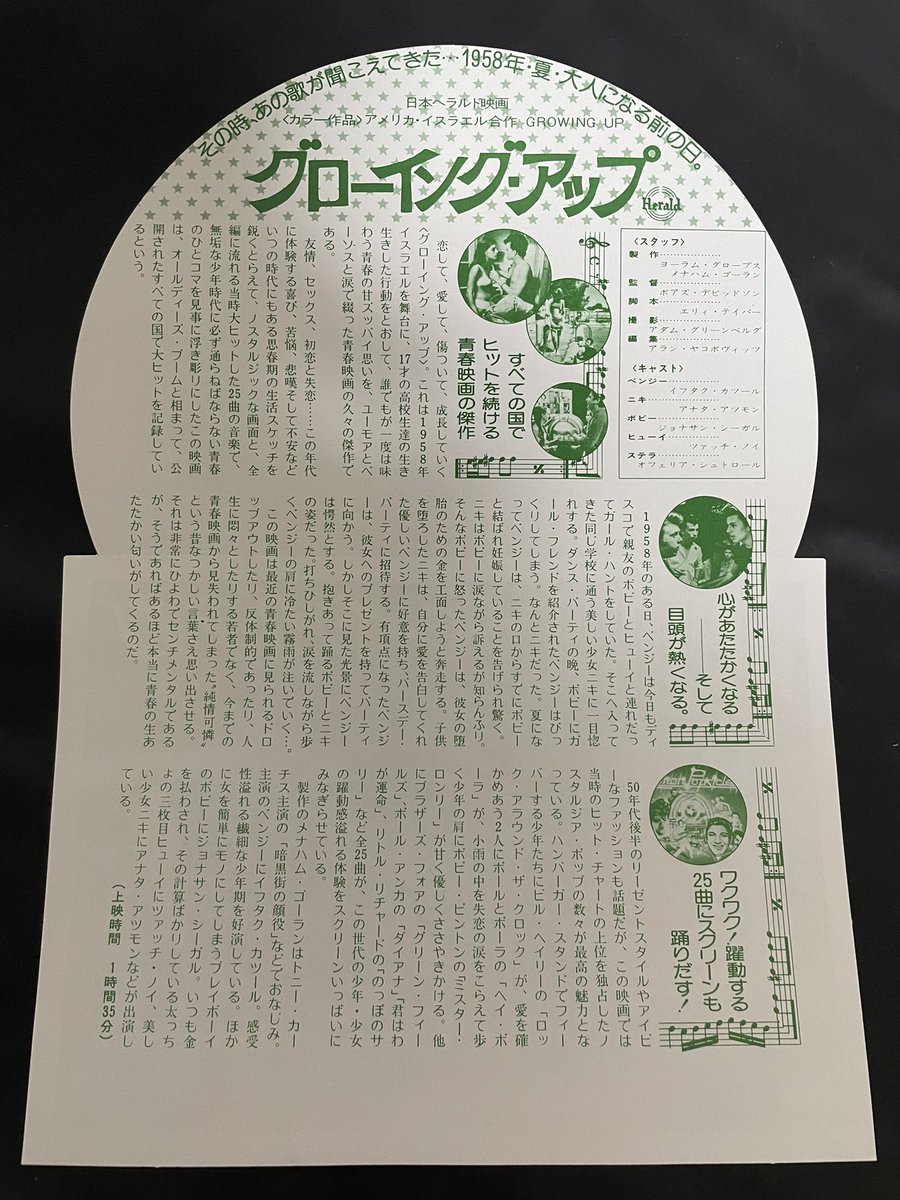 その時、あの歌が聞こえてきた…1958年・夏・大人になる前の日。
日本ヘラルド映画
〈カラー作品〉アメリカ・イスラエル合作 GROWING UP
グローイング・アップ
Herald
〈スタッフ〉
製作………………
ヨーラム・グローブス
メナハム・ゴーラン
監督………………
ボアズ・デビッドソン
脚本………………
エリィ・テイバー
撮影………………
アダム・グリーンベルグ
編集………………
アラン・ヤコボヴィッツ
〈キャスト〉
ベンジー……………
イフタク・カツール
ニキ………………
アナタ・アツモン
ボビー……………
ジョナサン・シーガル
ヒューイ……………
ツアッチ・ノイ
ステラ……………
オフェリア・シュトロール
すべての国で
ヒットを続ける
青春映画の傑作
恋して、愛して、傷ついて、成長していく
〈グローイング・アップ〉。これは1958年
イスラエルを舞台に、17才の高校生達の生き
生きした行動をとおして、誰でもが一度は味
わう青春の甘ズッパイ思いを、ユーモアとペ
ーソスと涙で綴った青春映画の久々の傑作で
ある。
友情、セックス、初恋と失恋……この年代
に体験する喜び、苦悩、悲嘆そして不安など
いつの時代にもある思春期の生活スケッチを
鋭くとらえて、ノスタルジックな画面と、全
編に流れる当時大ヒットした25曲の音楽で、
無垢な少年時代に必ず通らねばならない青春
のひとコマを見事に浮き彫りにしたこの映画
は、オールディーズ・ブームと相まって、公
開されたすべての国で大ヒットを記録してい
るという。
心があたたかくなる
――そして
目頭が熱くなる。
1958年のある日、ベンジーは今日もディ
スコで親友のボビーとヒューイと連れだっ
てガール・ハントをしていた。そこへ入って
きた同じ学校に通う美しい少女ニキに一目惚
れする。ダンス・パーティの晩、ボビーにガ
ール・フレンドを紹介されたベンジーはびっ
くりしてしまう。なんとニキだった。夏にな
ってベンジーは、ニキの口からすでにボビー
と結ばれ妊娠していることを告げられ驚く。
ニキはボビーに涙ながら訴えるが知らんふり。
そんなボビーに怒ったベンジーは、彼女の堕
胎のための金を工面しようと奔走する。子供
を堕ろしたニキは、自分に愛を告白してくれ
た優しいベンジーに好意を持ち、バースデー・
パーティに招待する。有頂点になったベンジ
ーは、彼女へのプレゼントを持ってパーティ
に向かう。しかしそこに見た光景にベンジー
は愕然とする。抱きあって踊るボビーとニキ
の姿だった。打ちひしがれ、涙を流しながら歩
くベンジーの肩に冷たい霧雨が注いていく…。
この映画は最近の青春映画に見られるドロ
ップアウトしたり、反体制的であったり、人
生に悶々としたりする若者でなく、今までの
青春映画から見失われてしまった“純情可憐”
という昔なつかしい言葉さえ思い出させる。
それは非常にひよわでセンチメンタルである
が、そうであればあるほど本当に青春の生あ
たたかい匂いがしてくるのだ。
ワクワク！躍動する
25曲にスクリーンも
踊りだす！
50年代後半のリーゼントスタイルやアイビ
ーなファッションも話題だが、この映画では
当時のヒット・チャートの上位を独占したノ
スタルジア・ポップの数々が最高の魅力とな
っている。ハンバーガー・スタンドでフィー
バーする少年たちにビル・ヘイリーの「ロッ
ク・アラウンド・ザ・クロック」が、愛を確
かめあう2人にポールとポーラの「ヘイ・ポ
ーラ」が、小雨の中を失恋の涙をこらえて歩
く少年の肩にボビー・ビントンの「ミスター・
ロンリー」が甘く優しくささやきかける。他
にブラザーズ・フォアの「グリーン・フィー
ルズ」、ポール・アンカの「ダイアナ」「君はわ
が運命」、リトル・リチャードの「のっぽのサ
リー」など全25曲が、この世代の少年・少女
の躍動感溢れる体験をスクリーンいっぱいに
みなぎらせている。
製作のメナハム・ゴーランはトニー・カー
チス主演の「暗黒街の顔役」などでおなじみ。
主演のベンジーにイフタク・カツール。感受
性溢れる繊細な少年期を好演している。ほか
に女を簡単にモノにしてしまうプレイボーイ
のボビーにジョナサン・シーガル。いつも金
を払わされ、その計算ばかりしている太っち
ょの三枚目ヒューイにツアッチ・ノイ、美し
い少女ニキにアナタ・アツモンなどが出演し
ている。
（上映時間　1時間35分）